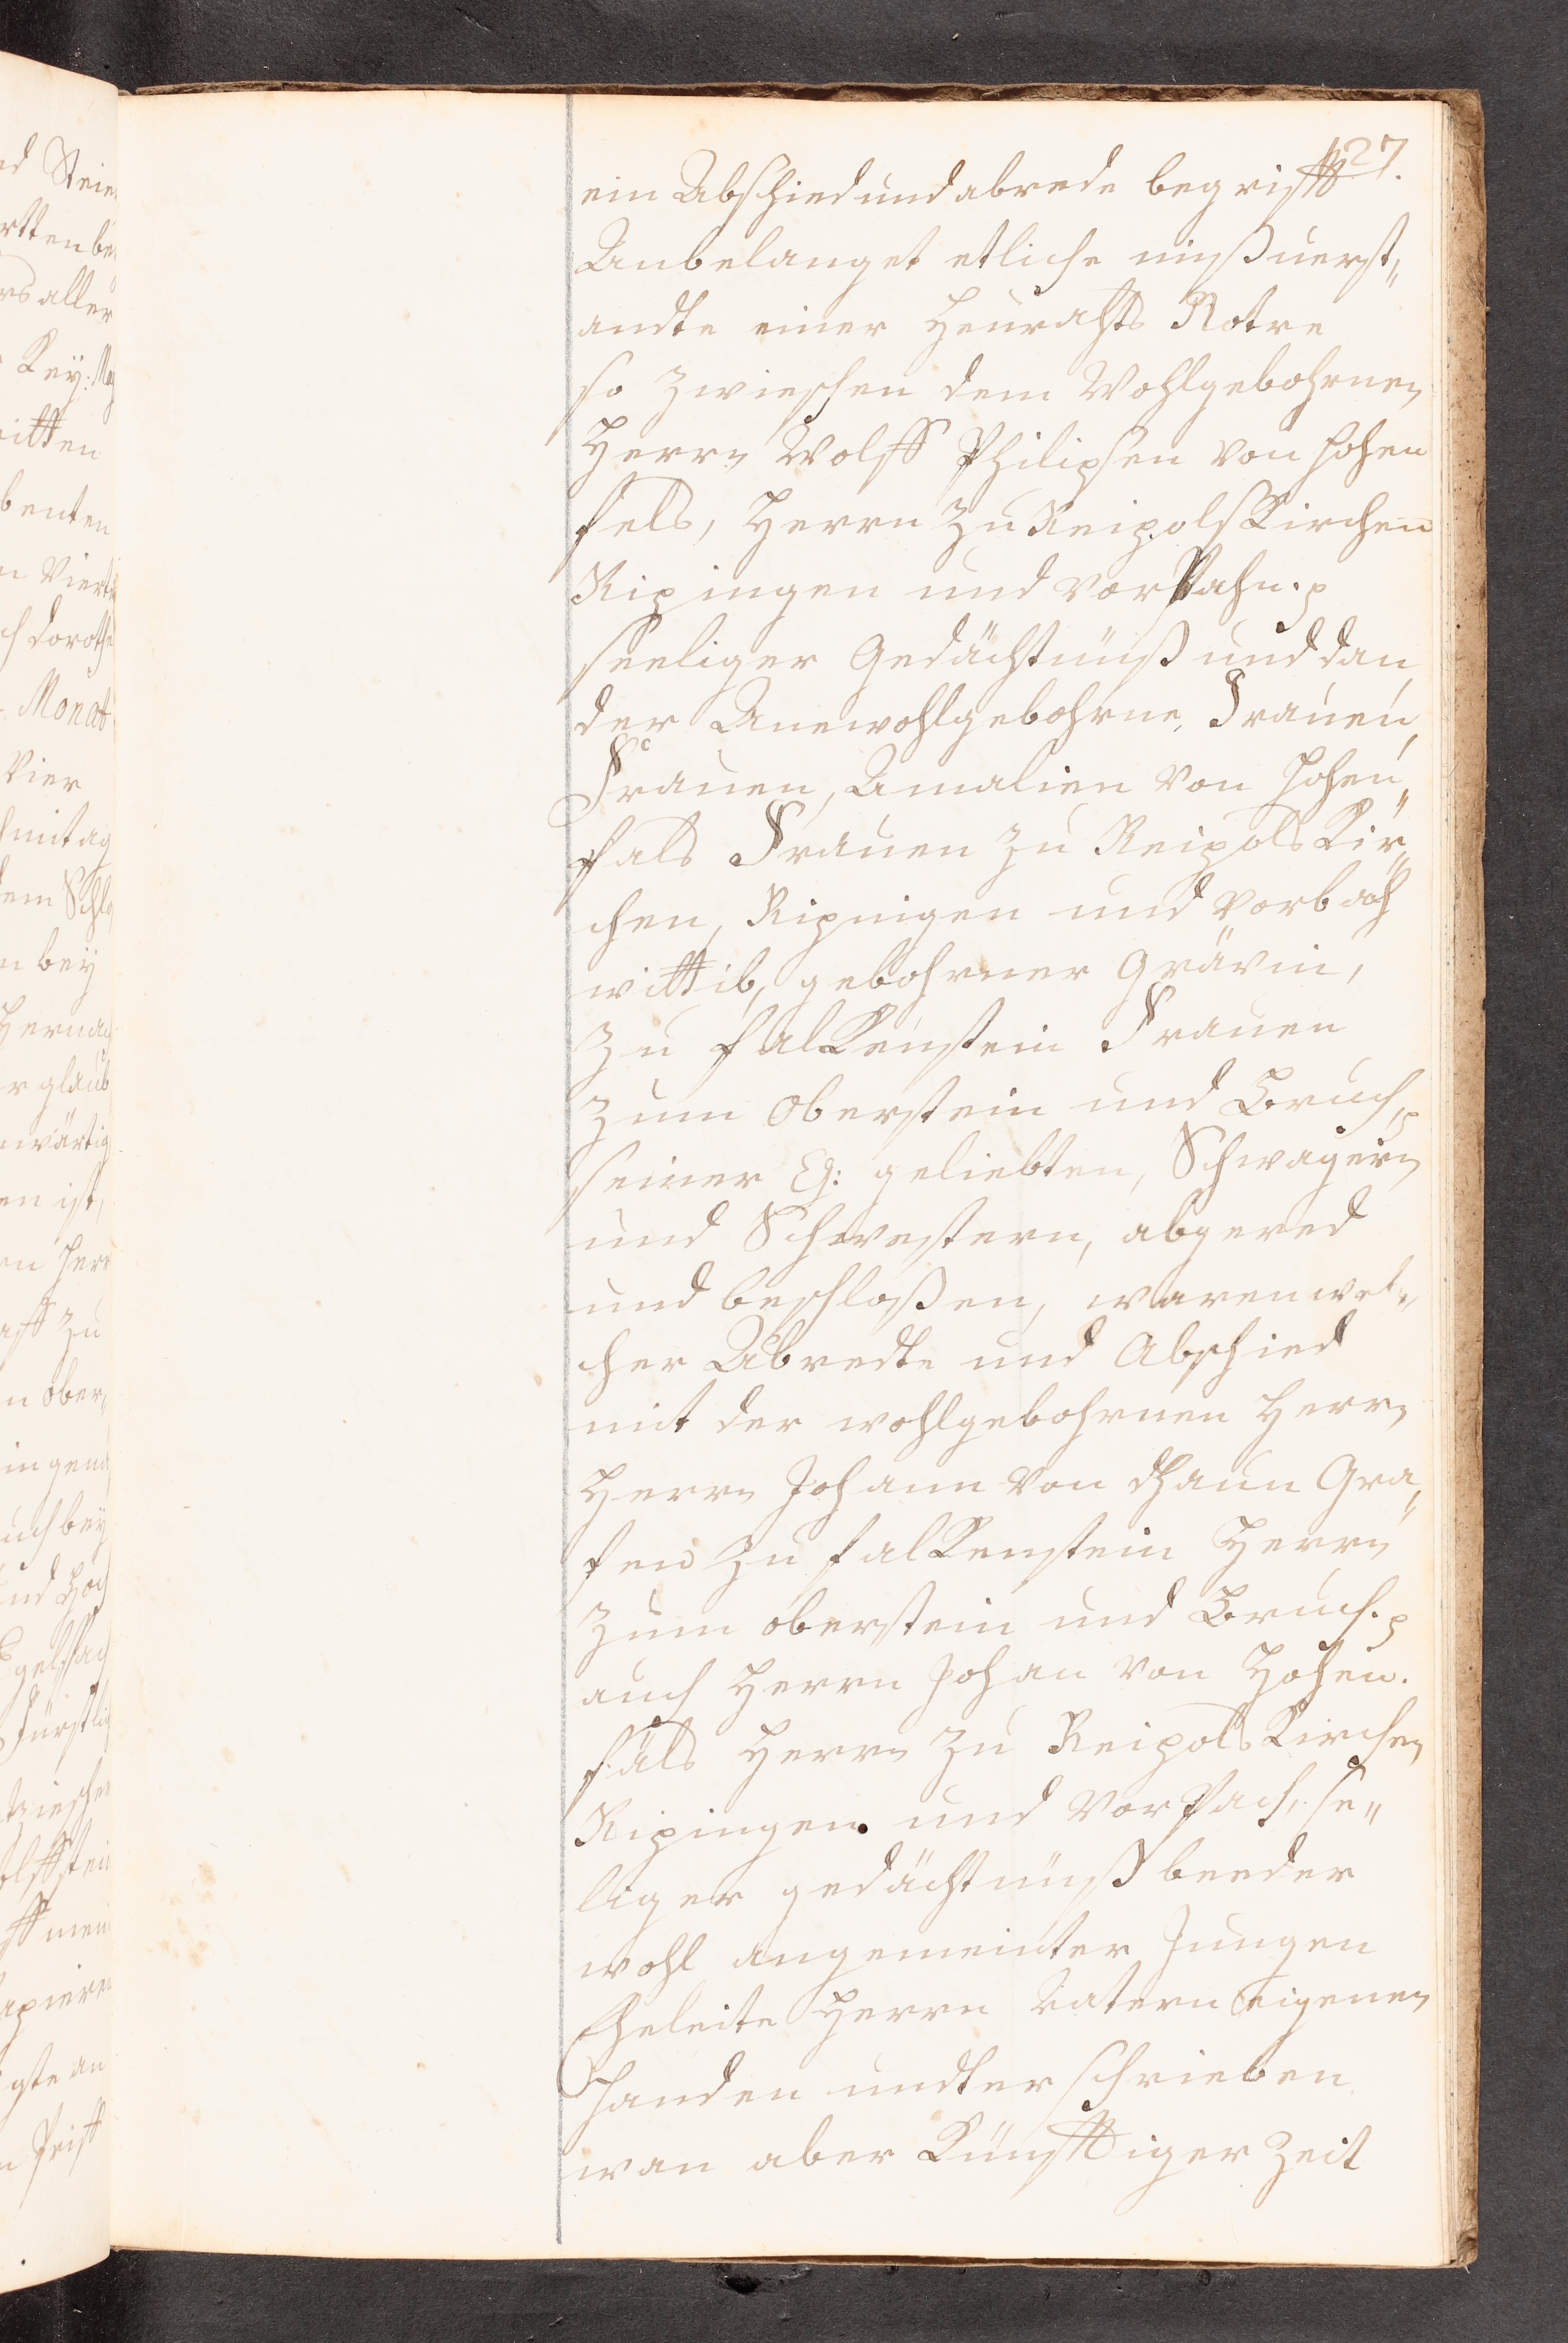 127.
ein Abschied und abrede begrifft
Anbelanget etliche mißuerst„
andte einer Heurahts Notre
so zwieschen dem Wohlgebohrnen
Herrn Wolff Philipsen von Hohen
fels, Herrn zu Reipolskirchen
Ripingen und Vorbahn. p
seeliger Gedächtnüß und dan
der Anewohlgebohrne, Frauen,
Frauen, Amalien von Hohen„
fals Frauen zu Reipolskir„
chen, Ripnigen und Vorbach
wittib, gebohrner Grävin,
zu falkenstein Frauen
zum Oberstein und Bruch, p
seiner Eh: geliebten, Schwagern
und Schwestern, abgered
und beschloßen, waren wel„
cher Abredte und Abschied
mit der wohlgebohrnen Herrn
Herrn Johann von dhaun Gra„
fen zu falkenstein Herrn
zum oberstein und Bruch. p
auch Herrn Johan von Hohen.
fäls Herrn zu Reipolskirchen
Ripingen. und Vorbach, se„
liger gedächtnüß beeder
wohl angemeinter Jungen
Eheleite Herrn Vatern eigenen
Handen undterschrieben
wan aber Künfftiger Zeit